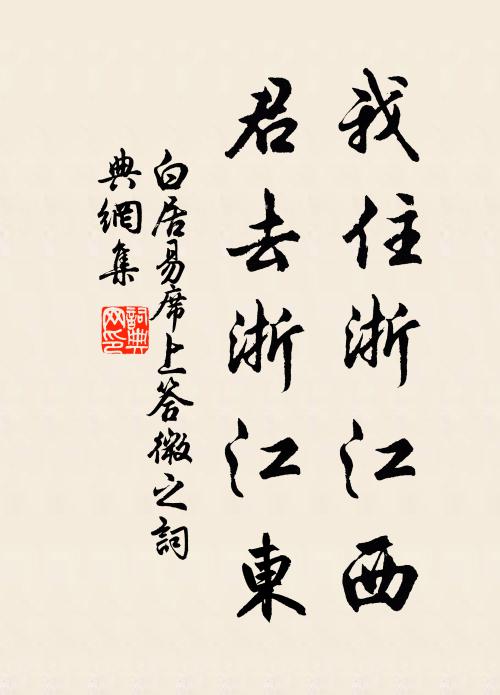 我住浙江西
君去浙江東
白居易席上答微之詞
典網集
詞典網印